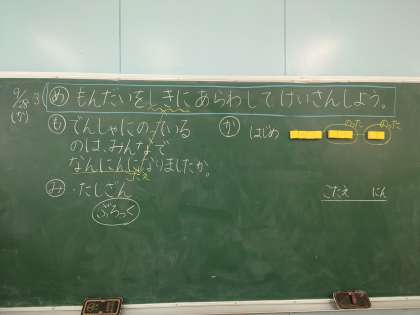 9/28 3 め もんだいをしきにあらわして、けいさんしよう。
(か)
も でんしゃにのっている
のは、みんなで
なんにんになりましたか。
こたえ
み ・たしざん
ぶろっく
か はじめ のった のった
こたえ にん